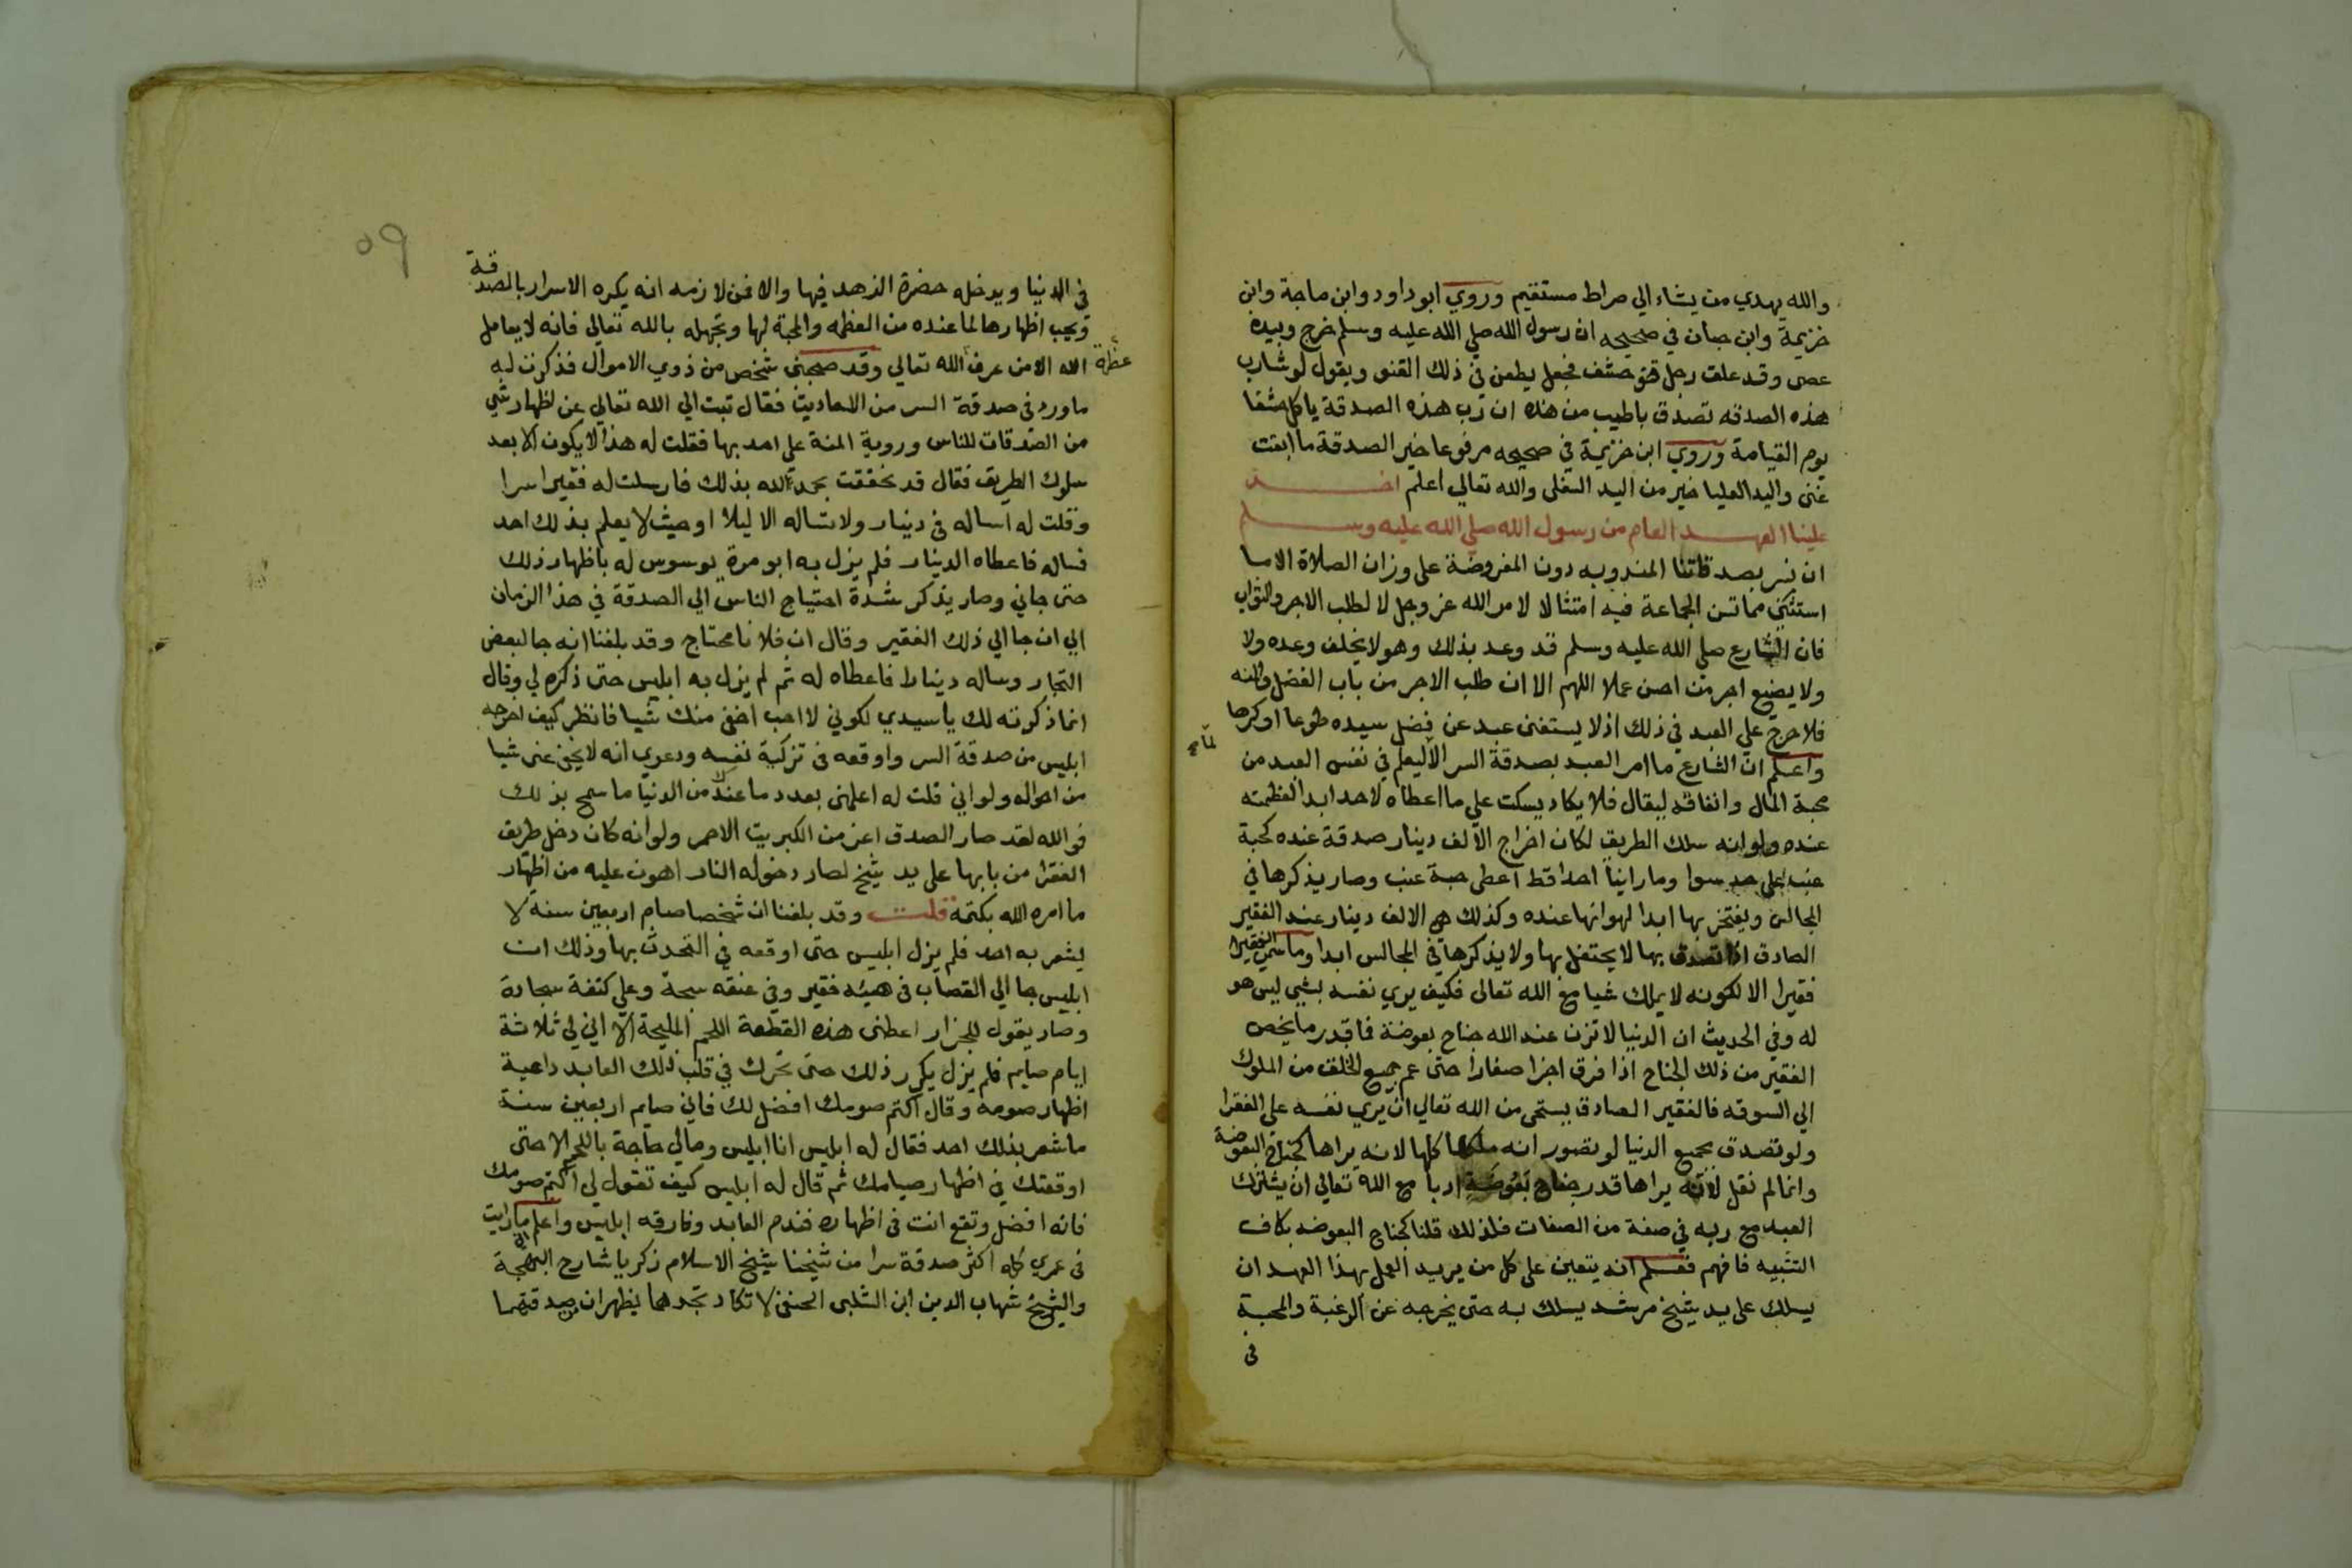 والله يهدي من يشاء الي صراط مستقيم وروي ابو داود وابن ماجة وابن
خزيمة وابن حبان في صحيحه ان رسول الله صلي الله عليه وسلم خرج وبيده
عصى وقد علق رجل قنو حشف فجعل يطعن في ذلك القنو ويقول لو شا رب
هذه الصدقه تصدق باطيب من هذه ان رب هذه الصدقة ياكل حشفا
يوم القيامة وروي ابن خزيمة في صحيحه مرفوعا خير الصدقة ما ابقت
غنى واليد العليا خير من اليد السفلى والله تعالي اعلم اخــذ
علينا العهــد العام من رسول الله صلي الله عليه وســلم
ان نسر بصدقاتنا المندوبه دون المفروضة على وزان الصلاة الا ما
استثني مما تسن الجماعة فيه امتثالا لامر الله عز وجل لا لطلب الاجر والثواب
فان الشارع صلي الله عليه وسلم قد وعد بذلك وهو لا يخلف وعده ولا
ولا يضيع اجر من احسن عملا اللهم الا ان طلب الاجر من باب الفضل والمنه
فلا حرج علي العبد في ذلك اذ لا يستغنى عبد عن فضل سيده طوعا او كرها
واعلم ان الشارع ما امر العبد بصدقة السر الا ليعلم في نفس العبد من
محبة المال وانفاقه ليقال فلا يكاد يسكت علي ما اعطاه لاحد ابدا لعظمته
عنده ولو انه سلك الطريق لكان اخراج الالف دينار صدقة عنده كحبة
عنب علي حد سوا وما راينا احدا قط اعطى حبة عنب وصار يذكرها في
المجالس ويفتخر بها ابدا لهوانها عنده وكذلك هي الالف دينار عند الفقير
الصادق اذا تصدق بها لا يحتفل بها ولا يذكرها في المجالس ابدا وما سمي الفقير
فقيرا الا لكونه لا يملك شيا مع الله تعالى فكيف يري نفسه بشي ليس هو
له وفي الحديث ان الدنيا لا تزن عند الله جناح بعوضة فما قدر ما يخص
الفقير من ذلك الجناح اذا فرق اجزا صغارا حتى عم جميع الخلق من الملوك
الي السوقه فالفقير الصادق يستحي من الله تعالي ان يري نفسه على الفقرا
ولو تصدق بجميع الدنيا لو تصور انه ملكها كلها لانه يراها كجناح البعوضة
وانما لم نقل لانه يراها قدر جناح بعوضة ادبا مع الله تعالي ان يشترك
العبد مع ربه في صفة من الصفات فلذلك قلنا كجناح البعوضه بكاف
التشبيه فافهم فعــلم انه يتعين على كل من يريد العمل بهذا العهد ان
يسلك على يد شيخ مرشد يسلك به حتى يخرجه عن الرغبة والمحبة
في
٥٩
في الدنيا ويدخله حضرة الزهد فيها والا فمن لازمه انه يكره الاسرار بالصدقة
ويحب اظهارها لما عنده من العظمه والمحبة لها وتجهله بالله تعالي فانه لا يعامل
الله الا من عرف عظمة الله تعالي وقد صحبني شخص من ذوي الاموال فذكرت له
ما ورد في صدقة السر من الاحاديث فقال تبت الي الله تعالي عن اظهار شي
من الصدقات للناس وروية المنة على احد بها فقلت له هذا لا يكون الا بعد
سلوك الطريق فقال قد تحققت بحمد الله بذلك فارسلت له فقيرا سرا
وقلت له اساله في دينار ولا تساله الا ليلا او حيث لا يعلم بذلك احد
فساله فاعطاه الدينار فلم يزل به ابو مرة يوسوس له باظهار ذلك
حتى جاني وصار يذكر شدة احتياج الناس الي الصدقة في هذا الزمان
الي ان جا الي ذلك الفقير وقال ان فلانا محتاج وقد بلغنا انه جا لبعض
التجار وساله دينارا فاعطاه له ثم لم يزل به ابليس حتى ذكره لي وقال
انما ذكرته لك يا سيدي لكوني لا احب اخفي منك شيا فانظر كيف اخرجه
ابليس من صدقة السر واوقعه في تزكية نفسه ودعوي انه لا يخفي عني شيا
من احواله ولو اني قلت له اعلمني بعدد ما عندك من الدنيا ما سمح بذلك
فوالله لقد صار الصدق اعز من الكبريت الاحمر ولو انه كان دخل طريق
الفقرا من بابها على يد شيخ لصار دخوله النار اهون عليه من اظهار
ما امره الله بكتمه قلت وقد بلغنا ان شخصا صام اربعين سنه لا
يشعر به احد فلم يزل ابليس حتى اوقعه في التحدث بها وذلك ان
ابليس جا الي القصاب في هيئه فقير وفي عنقه سبحة وعلي كتفة سجادة
وصار يقول للجزار اعطني هذه القطعة اللحم المليحة الا اني لي ثلاثة
ايام صايم فلم يزل يكرر ذلك حتى تحرك في قلب ذلك العابد داعية
اظهار صومه وقال اكتم صومك افضل لك فاني صايم اربعين سنة
ما شعر بذلك احد فقال له ابليس انا ابليس ومالي حاجة باللحم الا حتى
اوقعتك في اظهار صيامك ثم قال له ابليس كيف تقول لي اكتم صومك
فانه افضل وتقع انت في اظهاره فندم العابد وفارقه ابليس واعلم ما رايت
في عمري كله اكثر صدقة سرا من شيخنا شيخ الاسلام زكريا شارح البهجة
والشيخ شهاب الدين ابن الشلبي الحنفي لا تكاد تجدهما يظهران صدقتهما